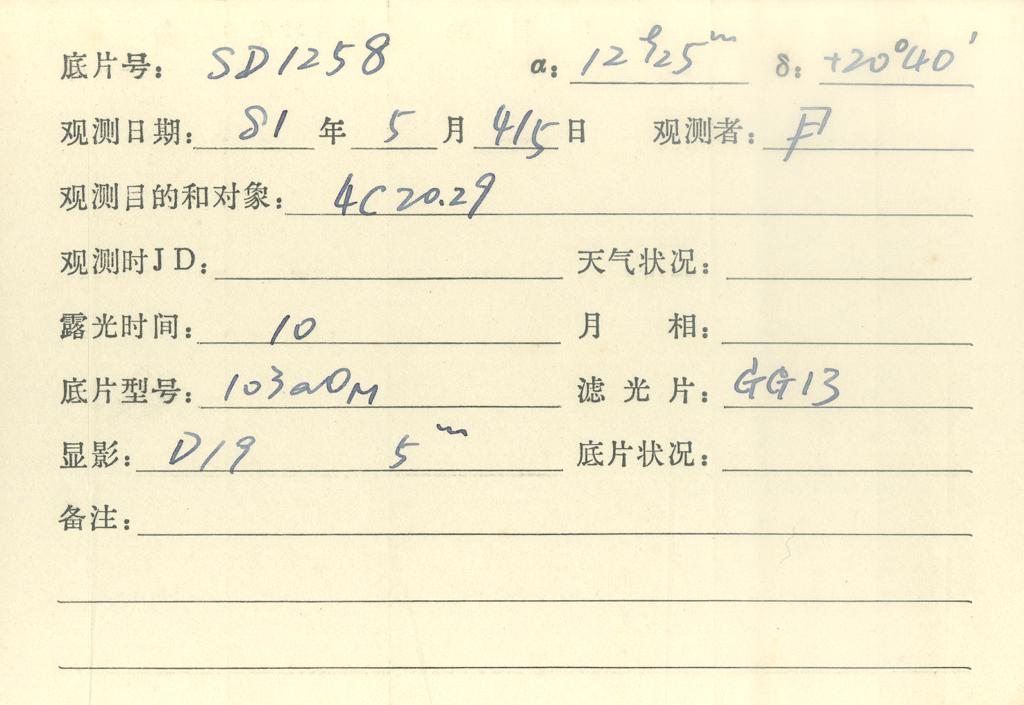 底片号： SD1258 α： 12h25m δ： +20°40′
观测日期： 81 年 5 月 4/5 日 观测者：
观测目的和对象： 4C20.29
观测时JD： 天气状况：
露光时间： 10 月 相：
底片型号： 103aOM 滤 光 片： GG13
显影： D19 5m 底片状况：
备注：